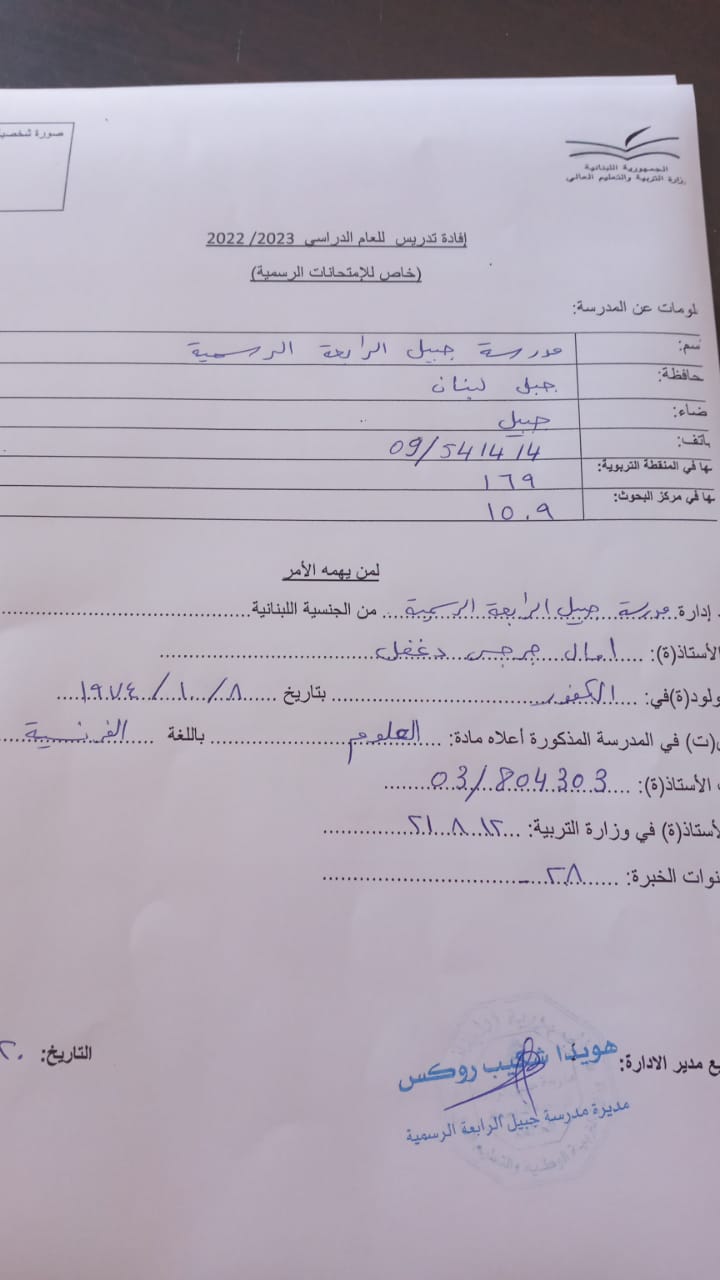 صورة شخصية
الجمهورية اللبنانية
وزارة التربية والتعليم العالي
إفادة تدريس للعام الدراسي 2023/ 2022
(خاص للإمتحانات الرسمية)
لومات عن المدرسة:
سم: مدرسة جبيل الرابعة الرسمية
حافظة: جبل لبنان
ضاء: جبيل
هاتف: 09/541414
ها في المنقطة التربوية: ١٦٩
ها في مركز البحوث: ١٥٠٩
لمن يهمه الأمر
إدارة مدرسة جبيل الرابعة الرسمية ... من الجنسية اللبنانية
الأستاذ(ة): امال جرجس دغفل
ولود(ة)في: الكفور بتاريخ ٨/ ١٠/ ١٩٧٤
(ت) في المدرسة المذكورة أعلاه مادة: العلوم باللغة الفرنسية
الأستاذ(ة): 03/804303
لأستاذ(ة) في وزارة التربية:
نوات الخبرة: ٢٨
ع مدير الادارة: هويدا شعيب روكس
مديرة مدرسة جبيل الرابعة الرسمية
التاريخ: ٢٠